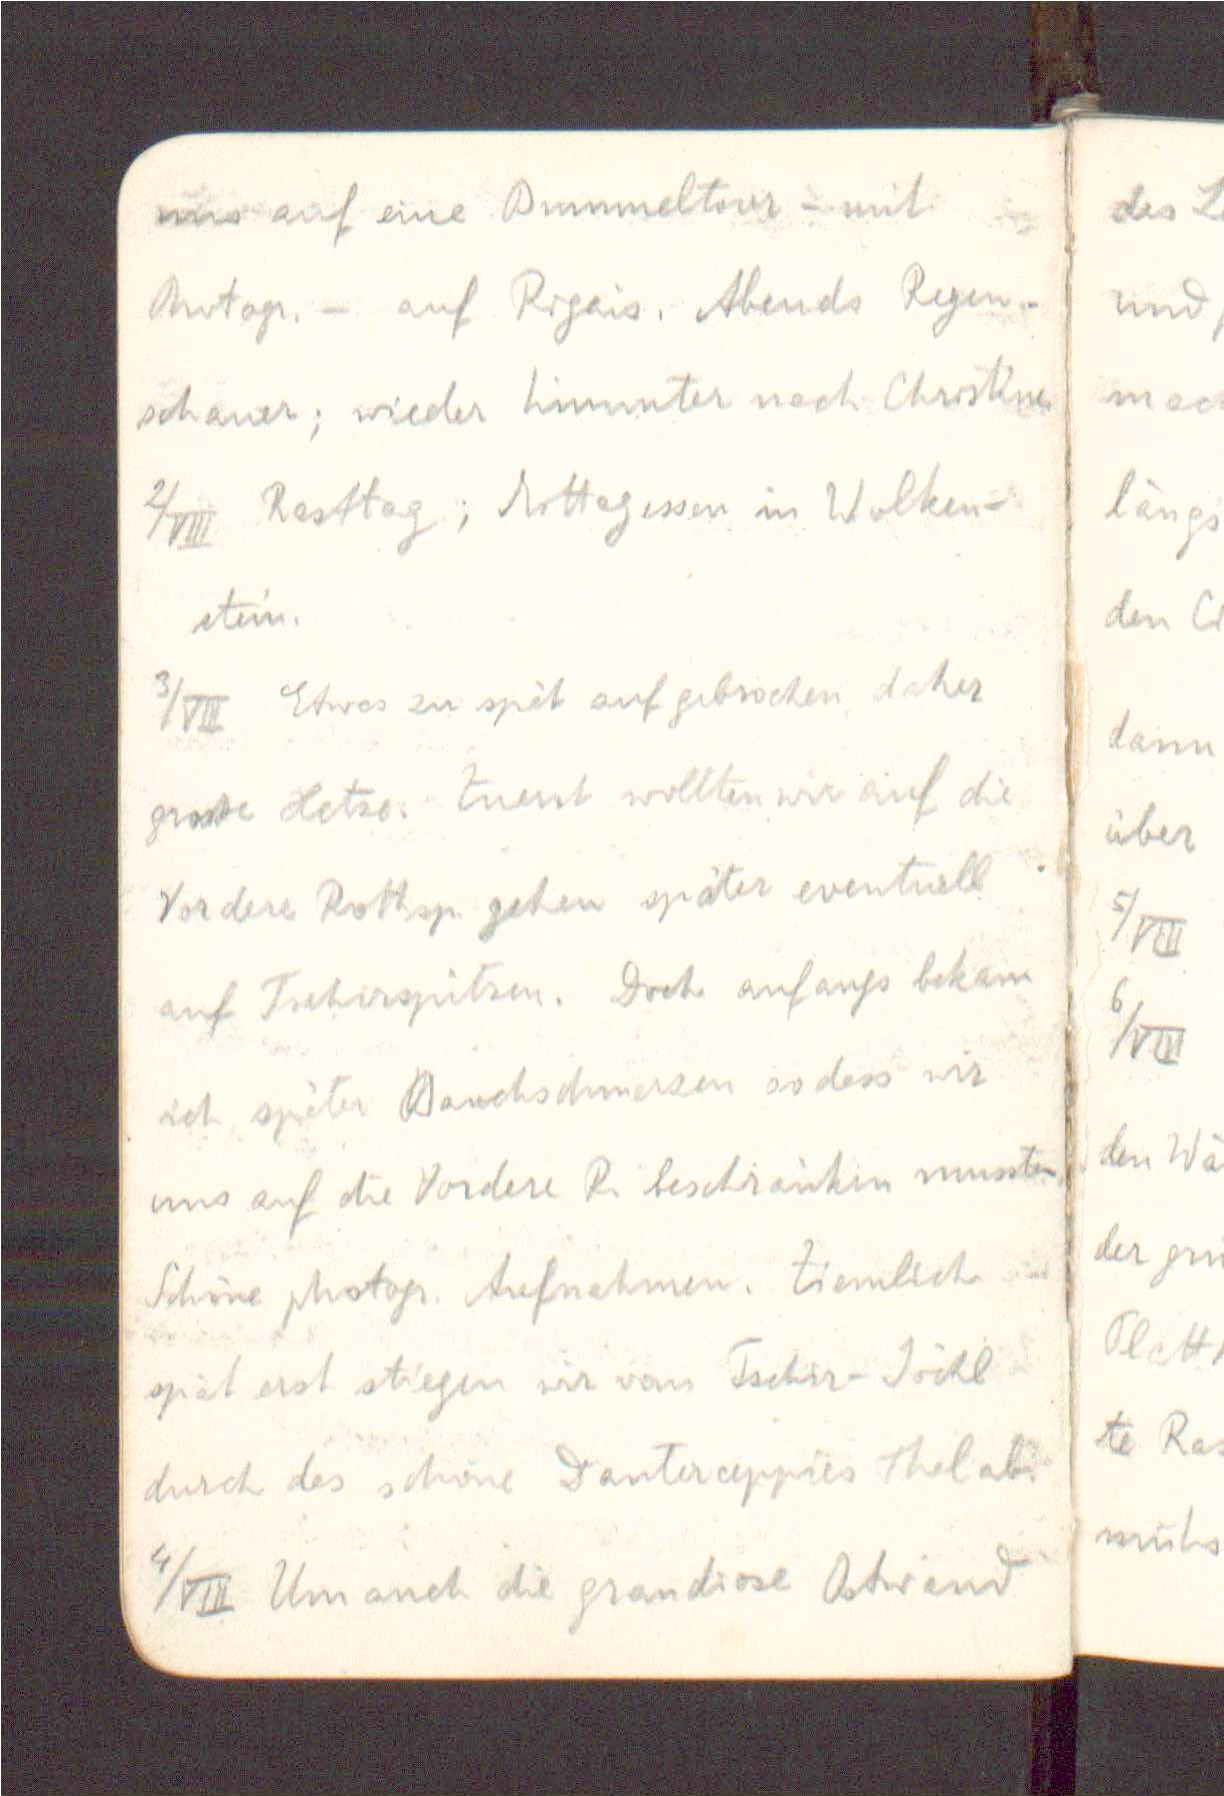 uns auf eine Bummeltour - mit
Photogr. - auf Rigais. Abends Regen-
schauer; wieder hinunter nach Christina
2/VIII Rasttag; Mittagessen in Wolken-
stein.
3/VIII Etwas zu spät aufgebrochen, daher
grosse Hetze. Zuerst wollten wir auf die
Vordere Rothsp. gehen später eventuell
auf Tschierspitzen. Doch anfangs bekam
ich später Bauchschmerzen sodass wir
uns auf die Vordere R. beschränken mussten.
Schöne photogr. Aufnahmen. Ziemlich
spät erst stiegen wir vom Tschier-Jöchl
durch das schöne Danterceppies Thal ab.
4/VIII Um auch die grandiose Ostwand
des
und
längs
den
dann
über
5/VIII
6/VIII
den Wä
der grü
Platt
te Ras